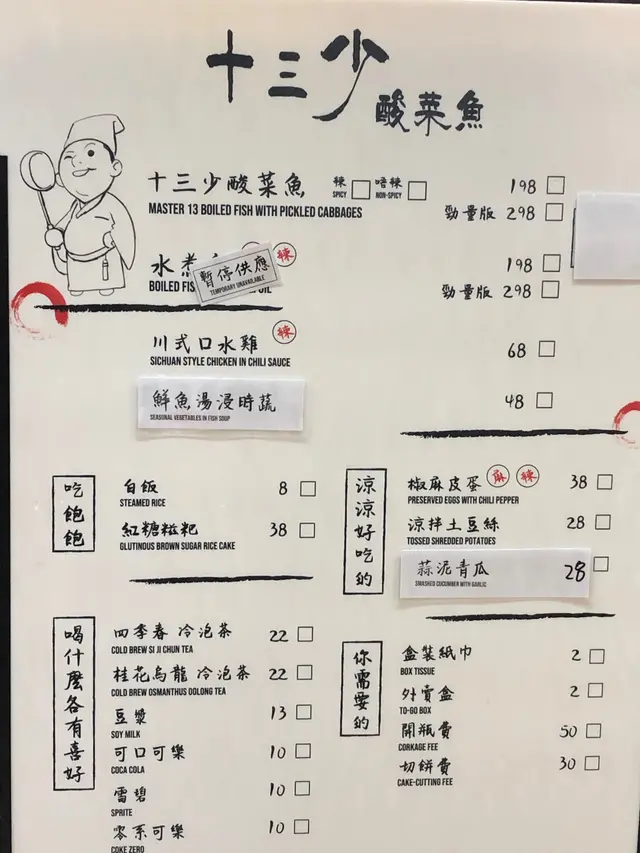 十三少
酸菜魚
十三少酸菜魚 辣 SPICY 唔辣 NON-SPICY 198
MASTER 13 BOILED FISH WITH PICKLED CABBAGES 勁量版 298
水煮 辣 198
暫停供應
TEMPORARY UNAVAILABLE
BOILED FIS OIL 勁量版 298
川式口水雞 辣 68
SICHUAN STYLE CHICKEN IN CHILI SAUCE
鮮魚湯浸時蔬 48
SEASONAL VEGETABLES IN FISH SOUP
吃飽飽
白飯 8
STEAMED RICE
紅糖糍粑 38
GLUTINOUS BROWN SUGAR RICE CAKE
涼涼好吃的
椒麻皮蛋 麻 辣 38
PRESERVED EGGS WITH CHILI PEPPER
涼拌土豆絲 28
TOSSED SHREDDED POTATOES
蒜泥青瓜 28
SMASHED CUCUMBER WITH GARLIC
喝什麼各有喜好
四季春 冷泡茶 22
COLD BREW SI JI CHUN TEA
桂花烏龍 冷泡茶 22
COLD BREW OSMANTHUS OOLONG TEA
豆漿 13
SOY MILK
可口可樂 10
COCA COLA
雪碧 10
SPRITE
零系可樂 10
COKE ZERO
你需要的
盒裝紙巾 2
BOX TISSUE
外賣盒 2
TO-GO BOX
開瓶費 50
CORKAGE FEE
切餅費 30
CAKE-CUTTING FEE